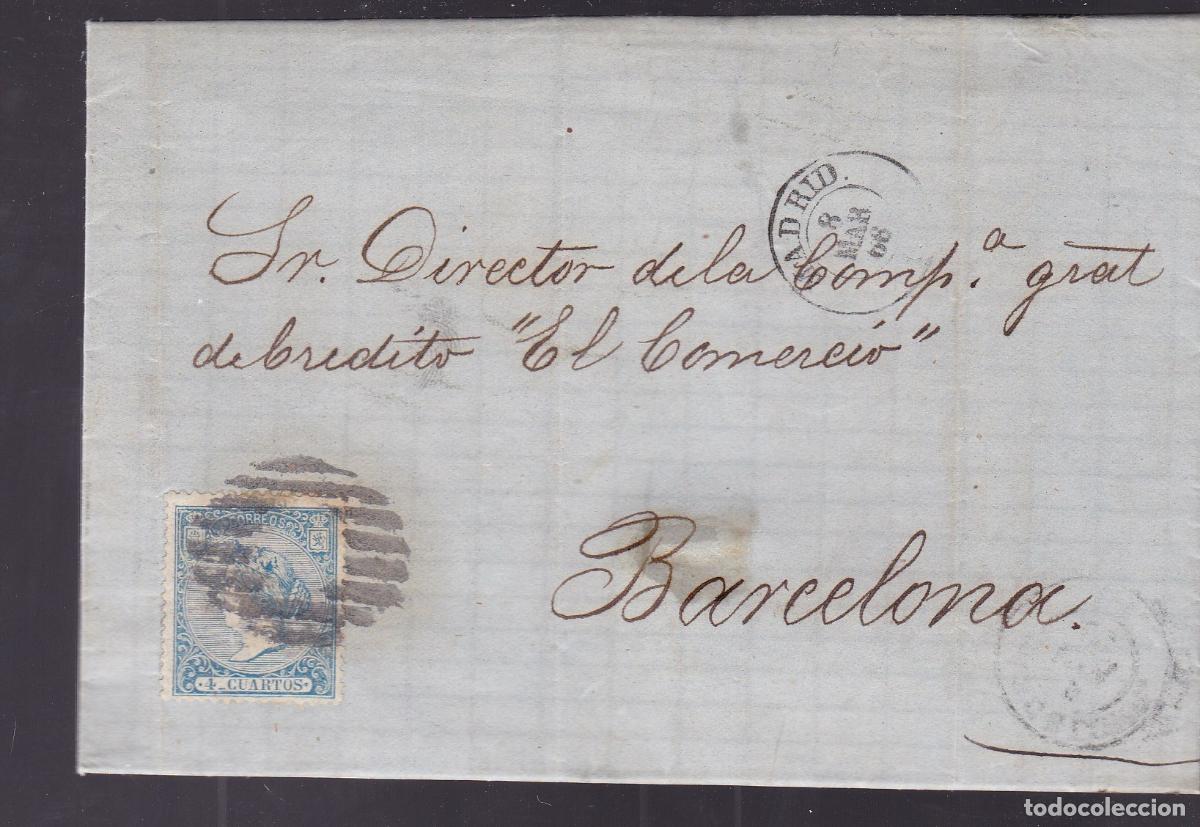 MADRID.
8
MAR
66
Sr. Director de la Comp.ª gral
de Credito "El Comercio"
CORREOS
Barcelona.
4 CUARTOS
todocoleccion